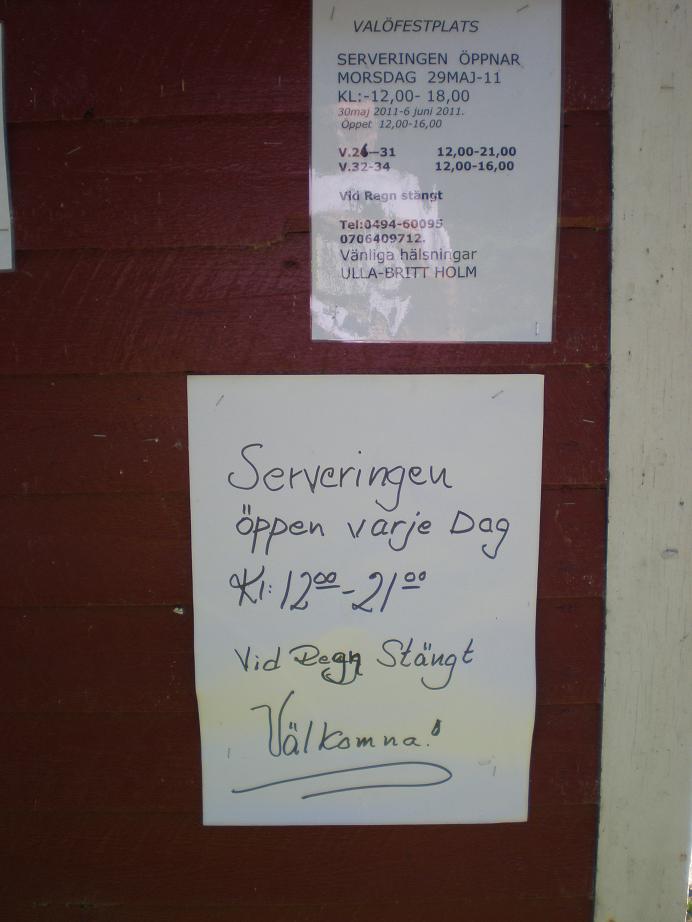 VALÖFESTPLATS
SERVERINGEN ÖPPNAR
MORSDAG 29MAJ-11
KL:-12,00- 18,00
30maj 2011-6 juni 2011.
Öppet 12,00-16,00
V.26-31 12,00-21,00
V.32-34 12,00-16,00
Vid Regn stängt
Tel:0494-60095
0706409712.
Vänliga hälsningar
ULLA-BRITT HOLM
Serveringen
öppen varje Dag
Kl: 12⁰⁰-21⁰⁰
Vid Regn Stängt
Välkomna!